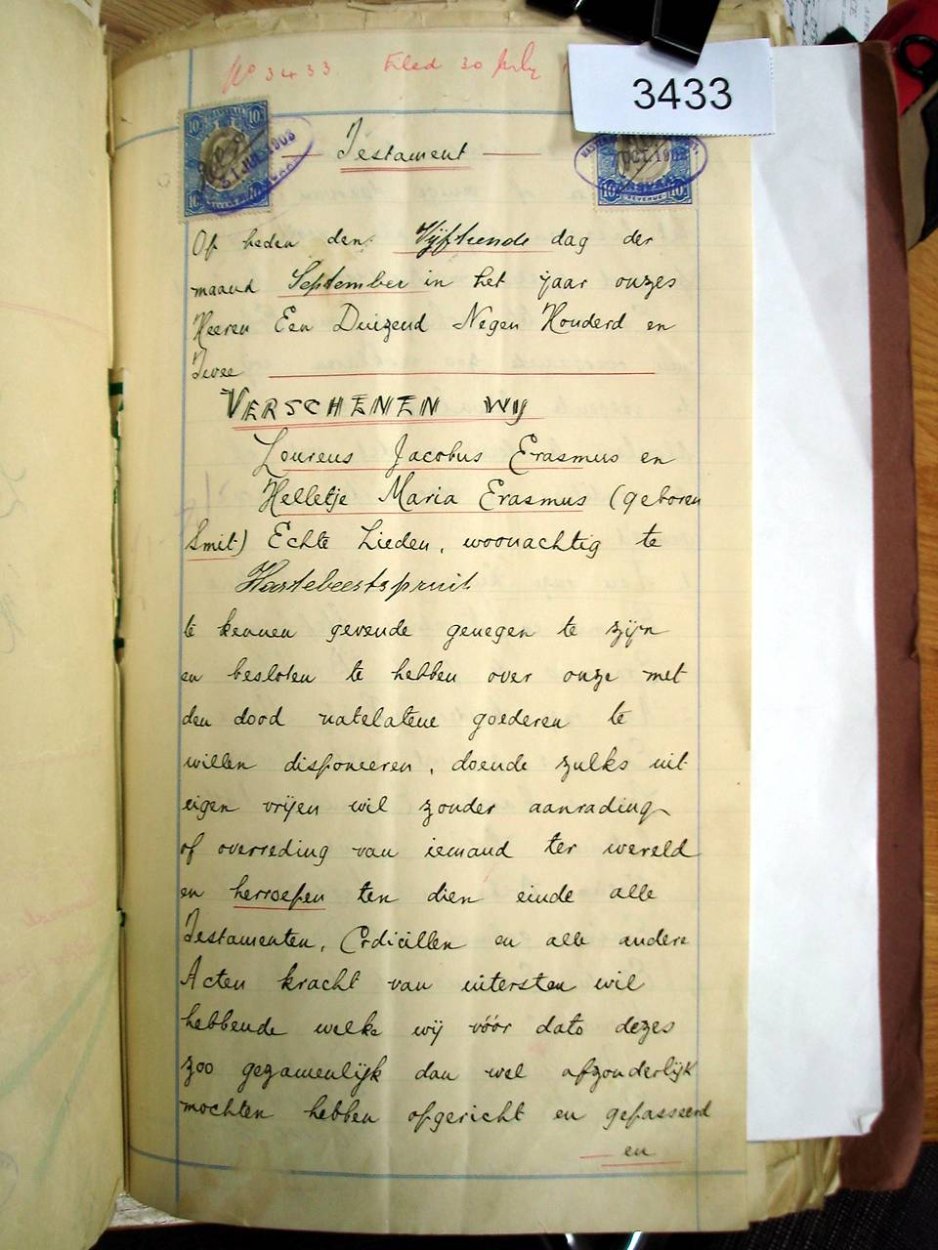 No 3433 Filed 30 July
3433
10 10
31 JUL 1903
10 10
OCT. 190
10 REVENUE 10
Testament
Op heden den Vijftiende dag der
maand September in het jaar onzes
Heeren Een Duizend Negen Honderd en
Twee
VERSCHENEN WY
Lourens Jacobus Erasmus en
Helletje Maria Erasmus (geboren
Smit) Echte Lieden, woonachtig te
Hartebeestspruit
te kennen gevende genegen te zijn
en besloten te hebben over onze met
den dood natelatene goederen te
willen disponeeren, doende zulks uit
eigen vrijen wil zonder aanrading
of overreding van iemand ter wereld
en herroepen ten dien einde alle
Testamenten, Codicillen en alle andere
Acten kracht van uitersten wil
hebbende welke wij vóór dato dezes
zoo gezamenlijk dan wel afzonderlijk
mochten hebben opgericht en gepasseerd
en